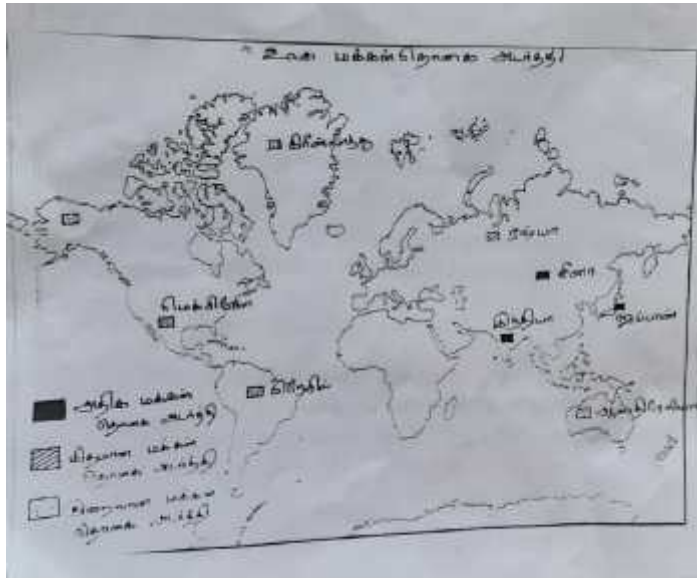 உலக மக்கள்தொகை அடர்த்தி
கிரீன்லாந்து
ரஷ்யா
சீனா
மெக்சிகோ
இந்தியா
ஜப்பான்
பிரேசில்
ஆஸ்திரேலியா
அதிக மக்கள்
தொகை அடர்த்தி
மிதமான மக்கள்
தொகை அடர்த்தி
குறைவான மக்கள்
தொகை அடர்த்தி